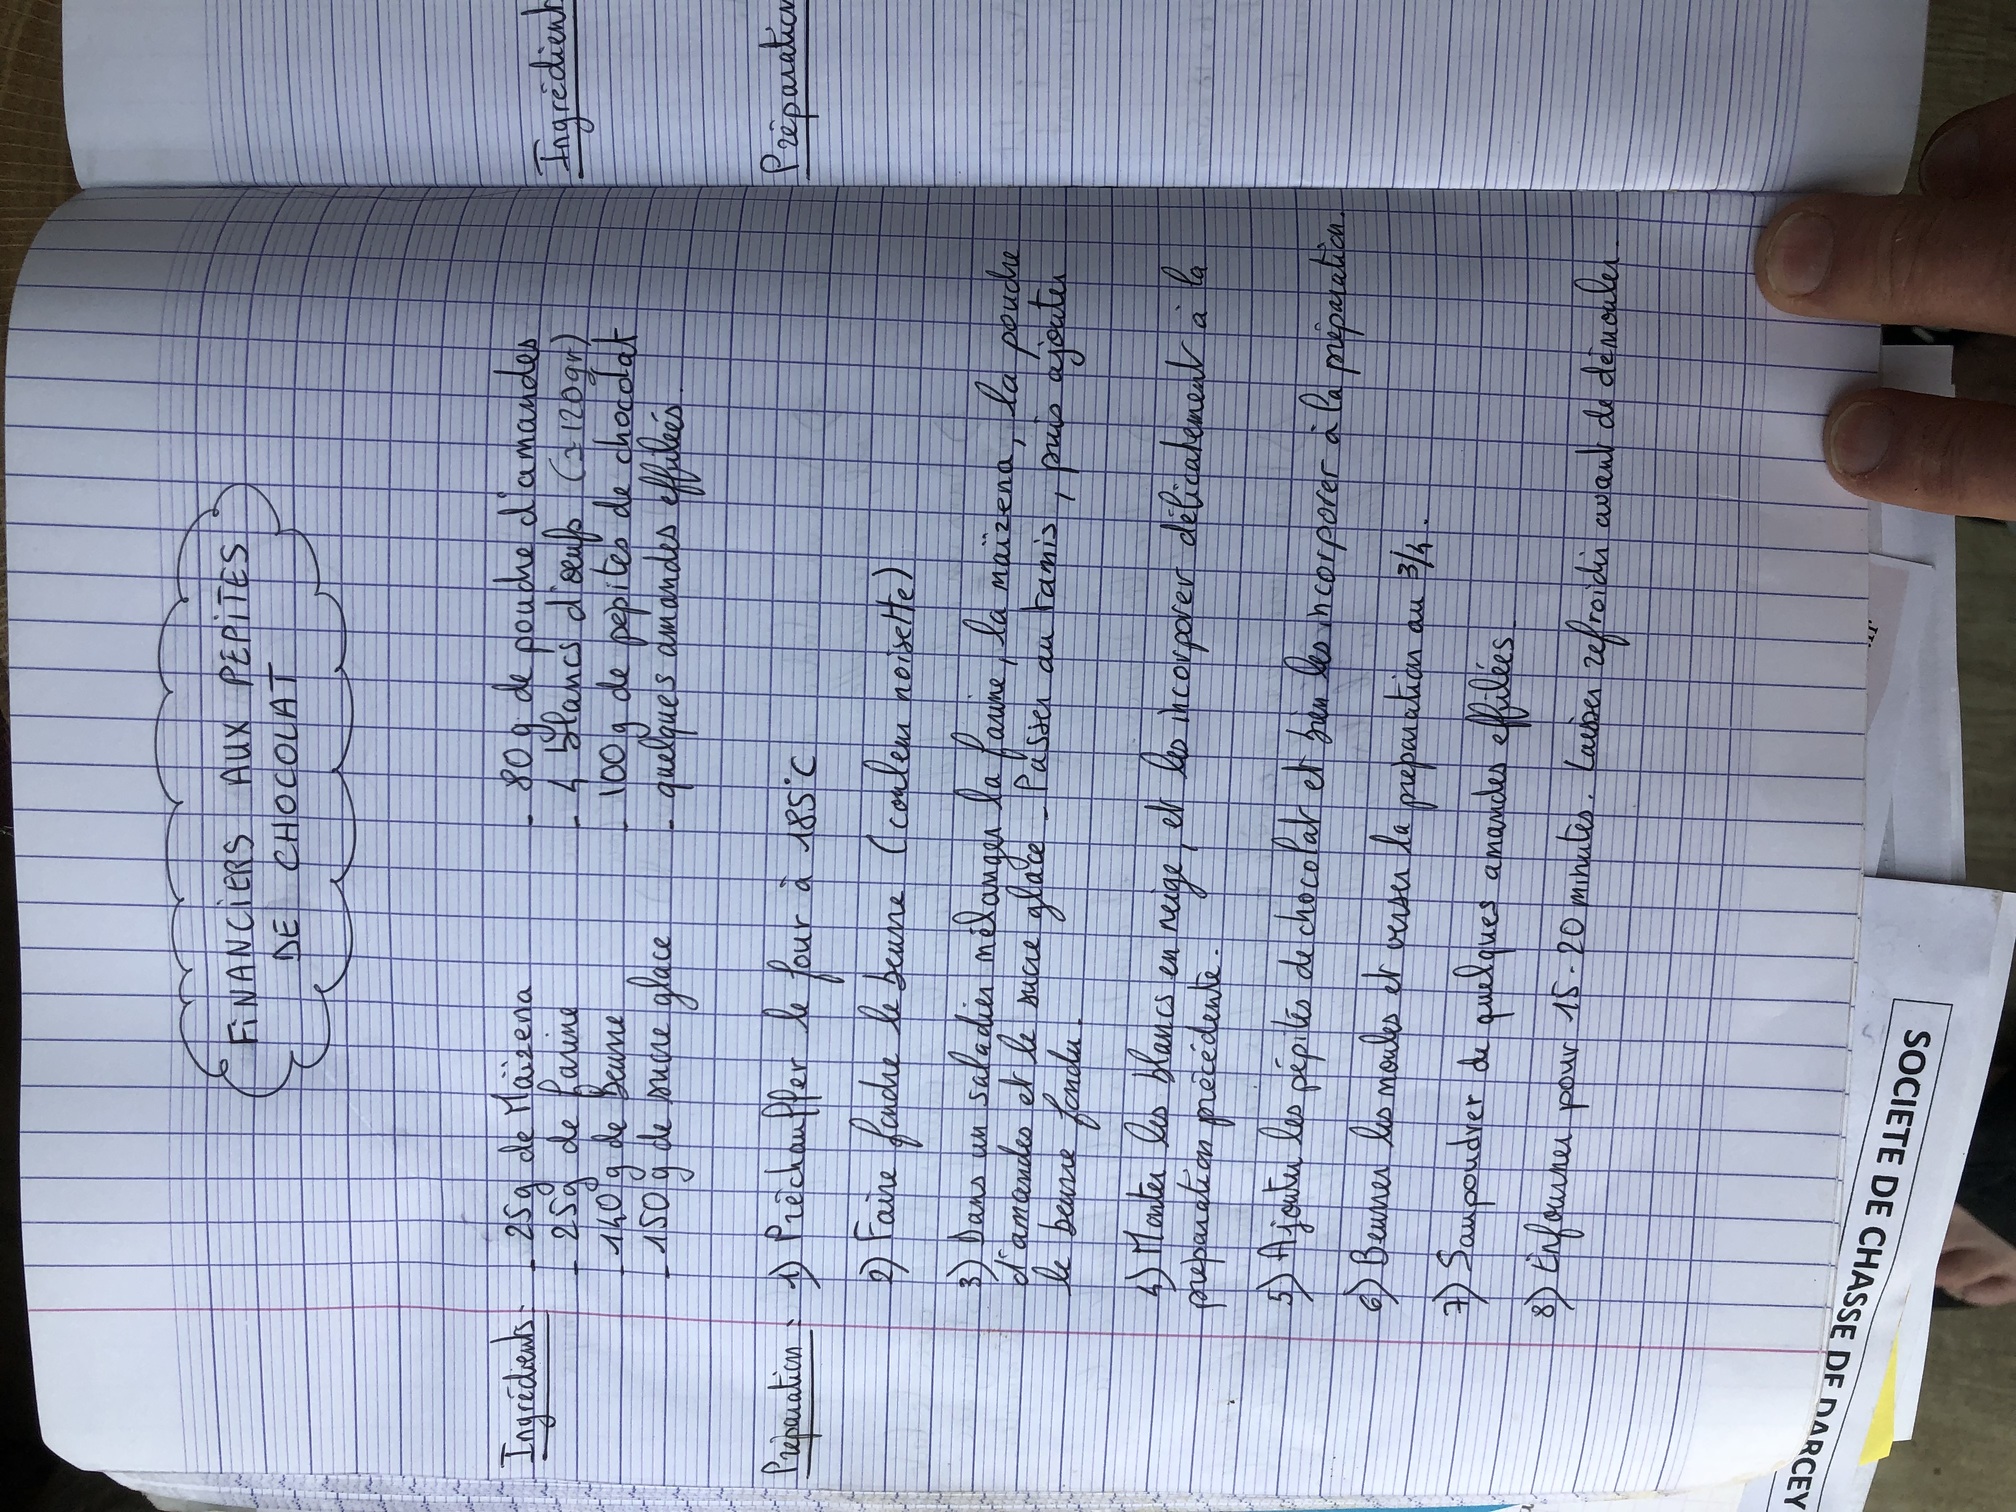 FINANCIERS AUX PEPITES
DE CHOCOLAT
Ingrédients : - 25g de Maïzena - 80 g de poudre d'amandes
- 25g de farine - 4 blancs d'oeufs (= 120gr)
- 140 g de Beurre - 100 g de pépites de chocolat
- 150 g de sucre glace - quelques amandes effilées.
Préparation : 1) Préchauffer le four à 185°C
2) Faire fondre le beurre (couleur noisette)
3) Dans un saladier mélanger la farine, la maïzena, la poudre
d'amandes et le sucre glace - Passer au tamis, puis ajouter
le beurre fondu.
4) Monter les blancs en neige, et les incorporer délicatement à la
préparation précédente.
5) Ajouter les pépites de chocolat et bien les incorporer à la préparation.
6) Beurrer les moules et verser la préparation au 3/4.
7) Saupoudrer de quelques amandes effilées.
8) Enfourner pour 15-20 minutes. Laisser refroidir avant de démouler.
Ingrédient
Préparation
SOCIETE DE CHASSE DE DARCEY